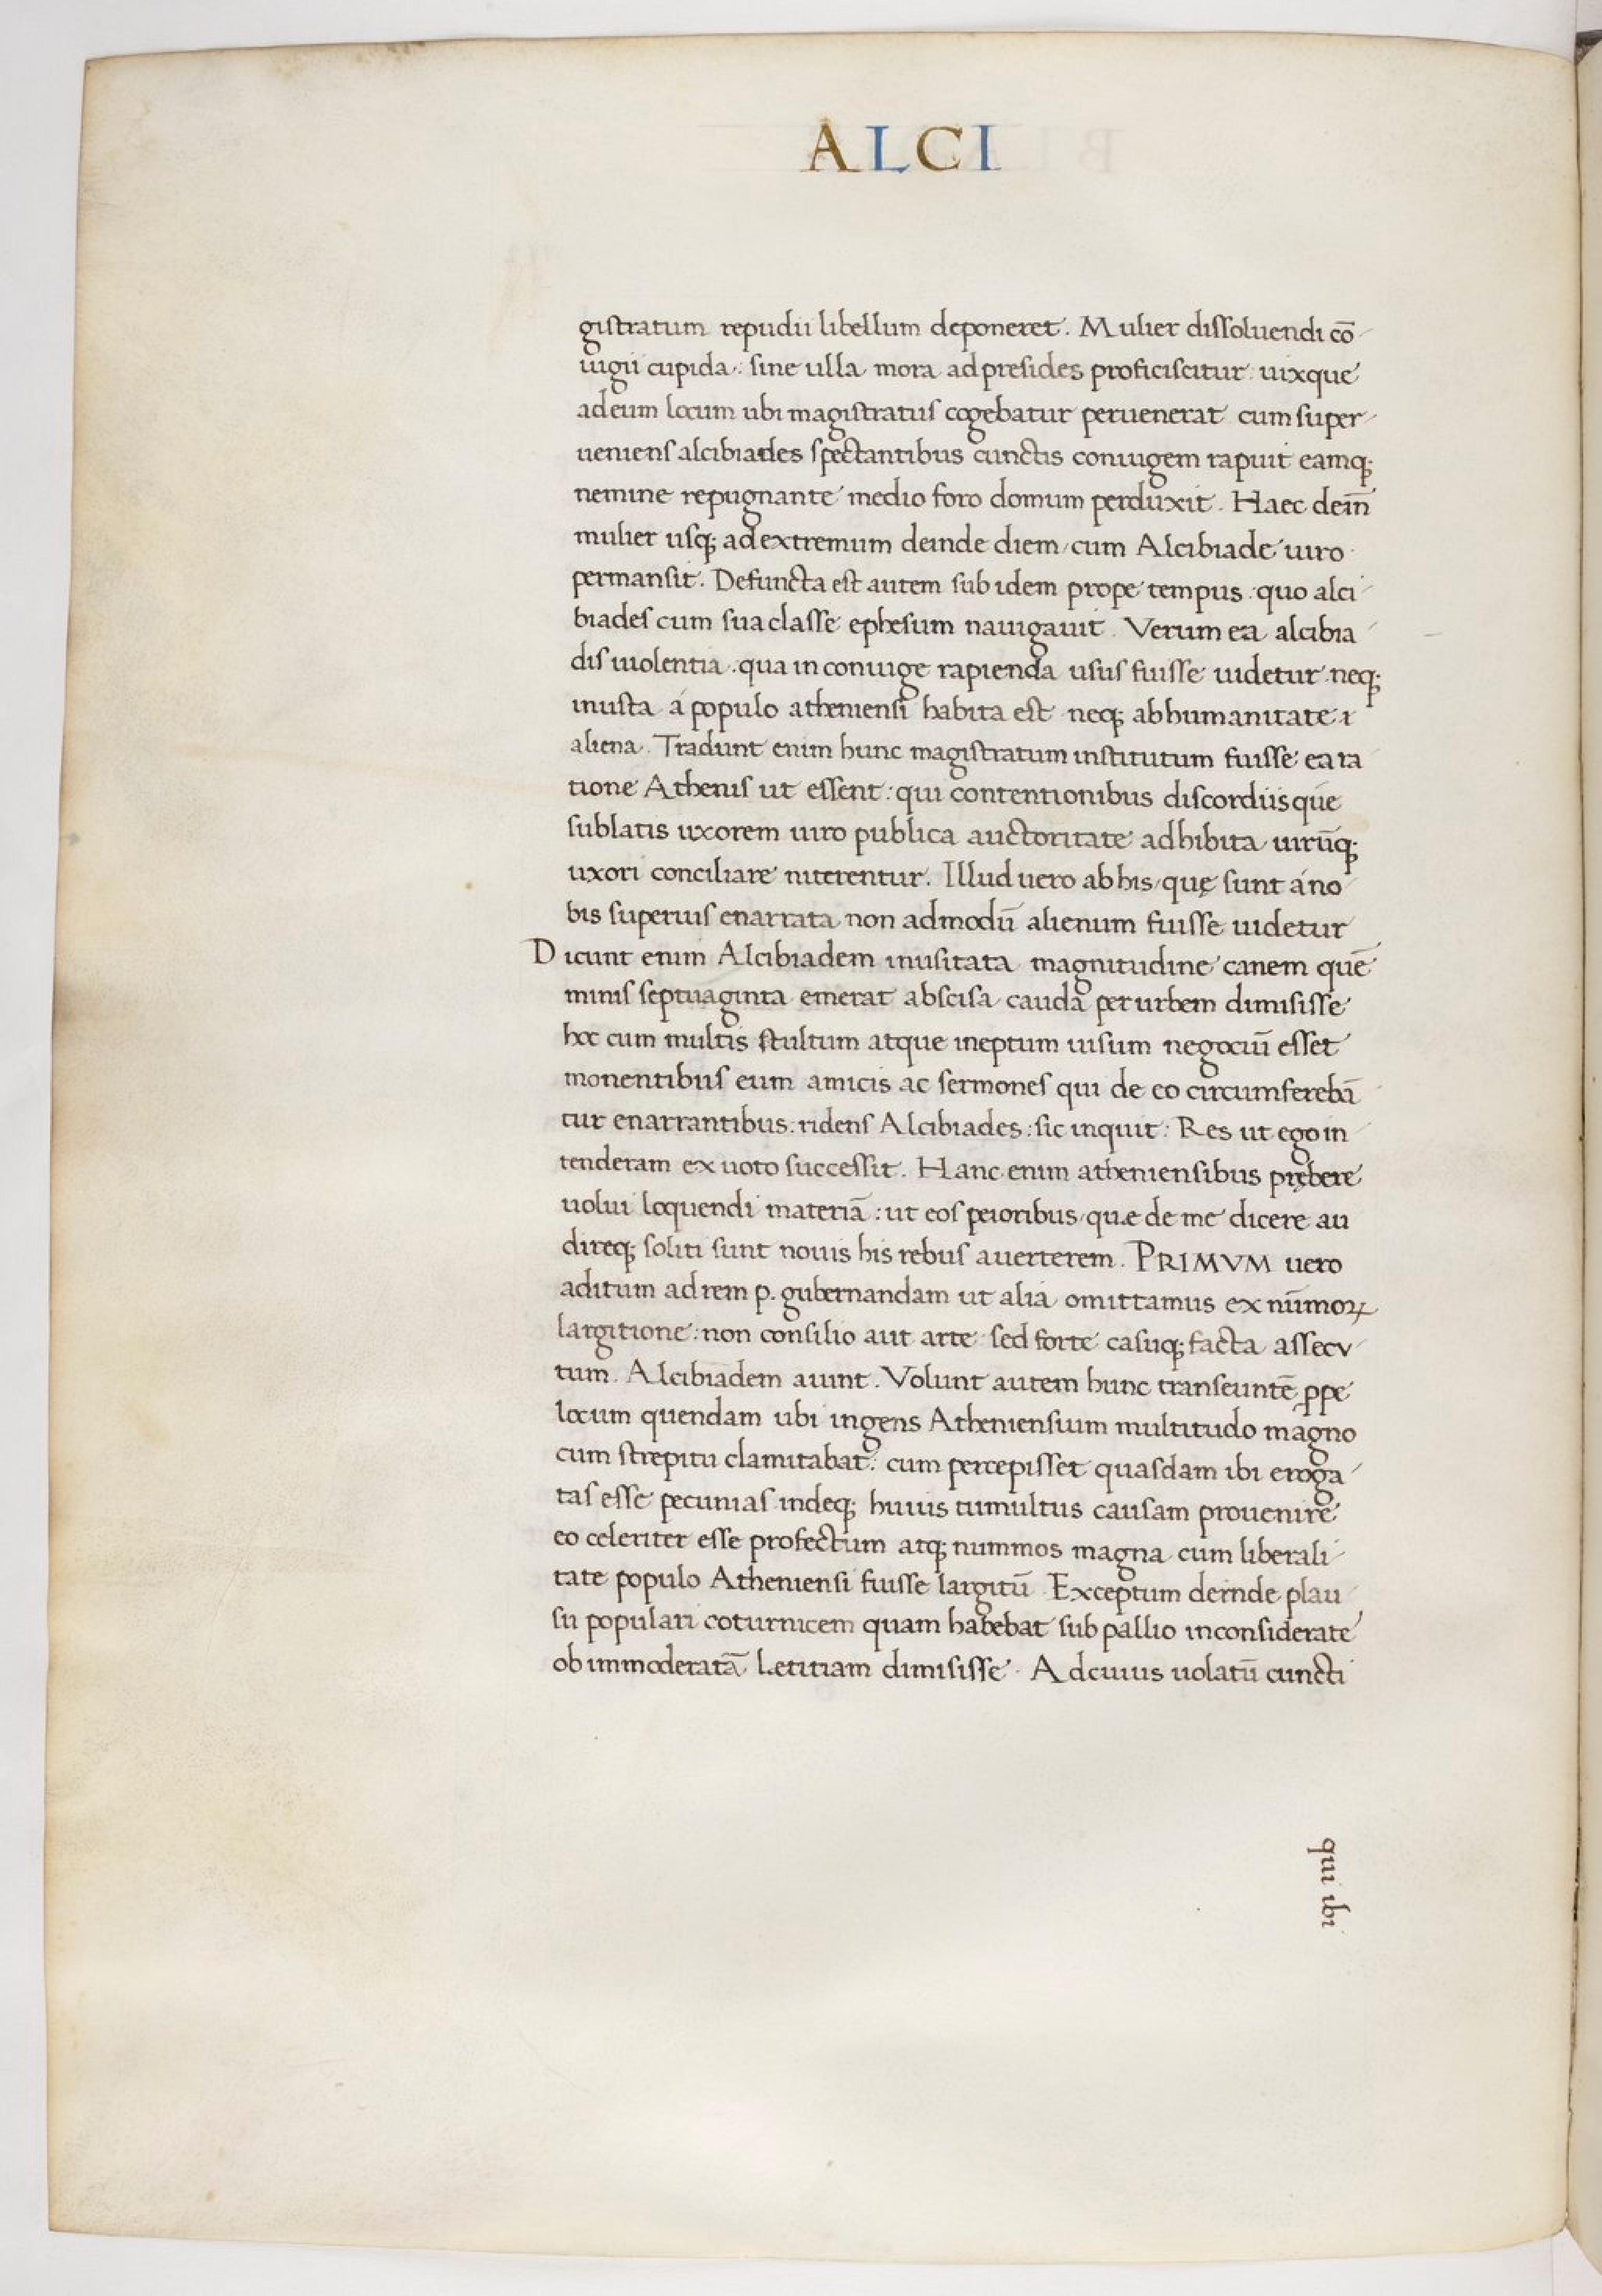 ALCI
gistratum repudii libellum deponeret. Mulier dissoluendi cō-
iugii cupida: sine ulla mora ad presides proficiscitur: uixque
ad eum locum ubi magistratus cogebatur peruenerat cum super-
ueniens alcibiades spectantibus cunctis coniugem rapuit eamq;
nemine repugnante medio foro domum perduxit. Haec dein̄
mulier usq; ad extremum deinde diem cum Alcibiade uiro
permansit. Defuncta est autem sub idem prope tempus quo alci-
biades cum sua classe ephesum nauigauit. Verum ea alcibia-
dis uiolentia qua in coniuge rapienda usus fuisse uidetur neq;
iniusta á populo atheniensi habita est neq; ab humanitate
aliena. Tradunt enim hunc magistratum institutum fuisse ea ra-
tione Athenis ut essent: qui contentionibus discordiisque
sublatis uxorem uiro publica auctoritate adhibita uirūq;
uxori conciliare niterentur. Illud uero ab his quę sunt á no-
bis superius enarrata non admodū alienum fuisse uidetur
Dicunt enim Alcibiadem inusitata magnitudine canem quē
minis septuaginta emerat abscisa cauda per urbem dimisisse
hoc cum multis stultum atque ineptum uisum negociū esset
monentibus eum amicis ac sermones qui de eo circumferebā-
tur enarrantibus: ridens Alcibiades: sic inquit: Res ut ego in-
tenderam ex uoto successit. Hanc enim atheniensibus prębere
uolui loquendi materiā: ut eos peioribus quae de me dicere au
direq; soliti sunt nouis his rebus auerterem. PRIMVM uero
aditum ad rem p. gubernandam ut alia omittamus ex nūmoꝝ
largitione: non consilio aut arte sed forte casuq; facta assecu-
tum. Alcibiadem aiunt. Volunt autem hunc transeuntē ꝓpe
locum quendam ubi ingens Atheniensium multitudo magno
cum strepitu clamitabat: cum percepisset quasdam ibi eroga-
tas esse pecunias indeq; huius tumultus causam prouenire
eo celeriter esse profectum atq; nummos magna cum liberali-
tate populo Atheniensi fuisse largitū. Exceptum deinde plau-
su populari coturnicem quam habebat sub pallio inconsiderate
ob immoderatā laetitiam dimisisse. Ad cuius uolatū cuncti
qui ibi